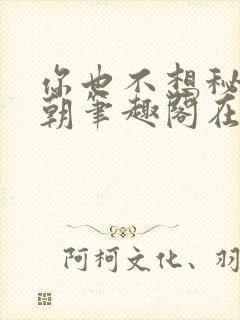 你也不想秘
朝笔趣阁在
阿柯文化、羽